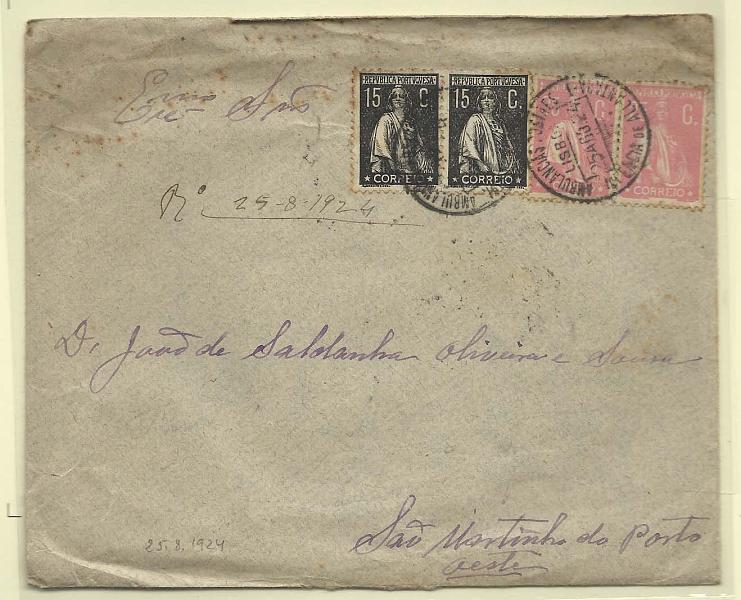 Exmo Snr
REPUBLICA PORTUGUESA
15 C.
CORREIO
REPUBLICA PORTUGUESA
15 C.
CORREIO
C.
C.
CORREIO
AMBULANCIAS
LISB
25 AGO
Rº 25-8-1924
D. João de Saldanha Oliveira e Sousa
São Martinho do Porto
oeste
25.8.1924